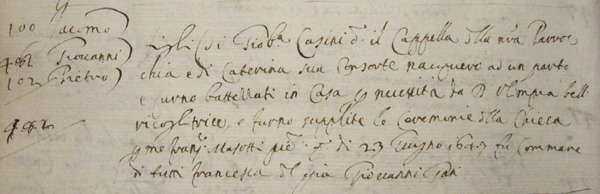 100 Jacomo
Giovanni figli di Gio:ba Casini d.o il Cappella della nra Parroc
102 Pietro chia e di Caterina sua Consorte nacquero ad un parto
e furno battezzati in Casa p necessità da D Olimpia
ricoglitrice, e furno supplite le Ceremonie della Chiesa
p me Franc.o Masotti di 23 Giugno 1643 fu Commare
di tutti Francesca del fu Giovanni